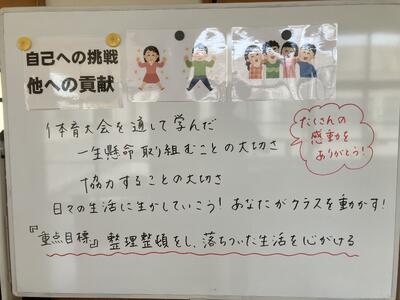 自己への挑戦
他への貢献
体育大会を通して学んだ
一生懸命取り組むことの大切さ
協力することの大切さ
たくさんの
感動を
ありがとう!
日々の生活に生かしていこう! あなたがクラスを動かす!
『重点目標』整理整頓をし、落ちついた生活を心がける